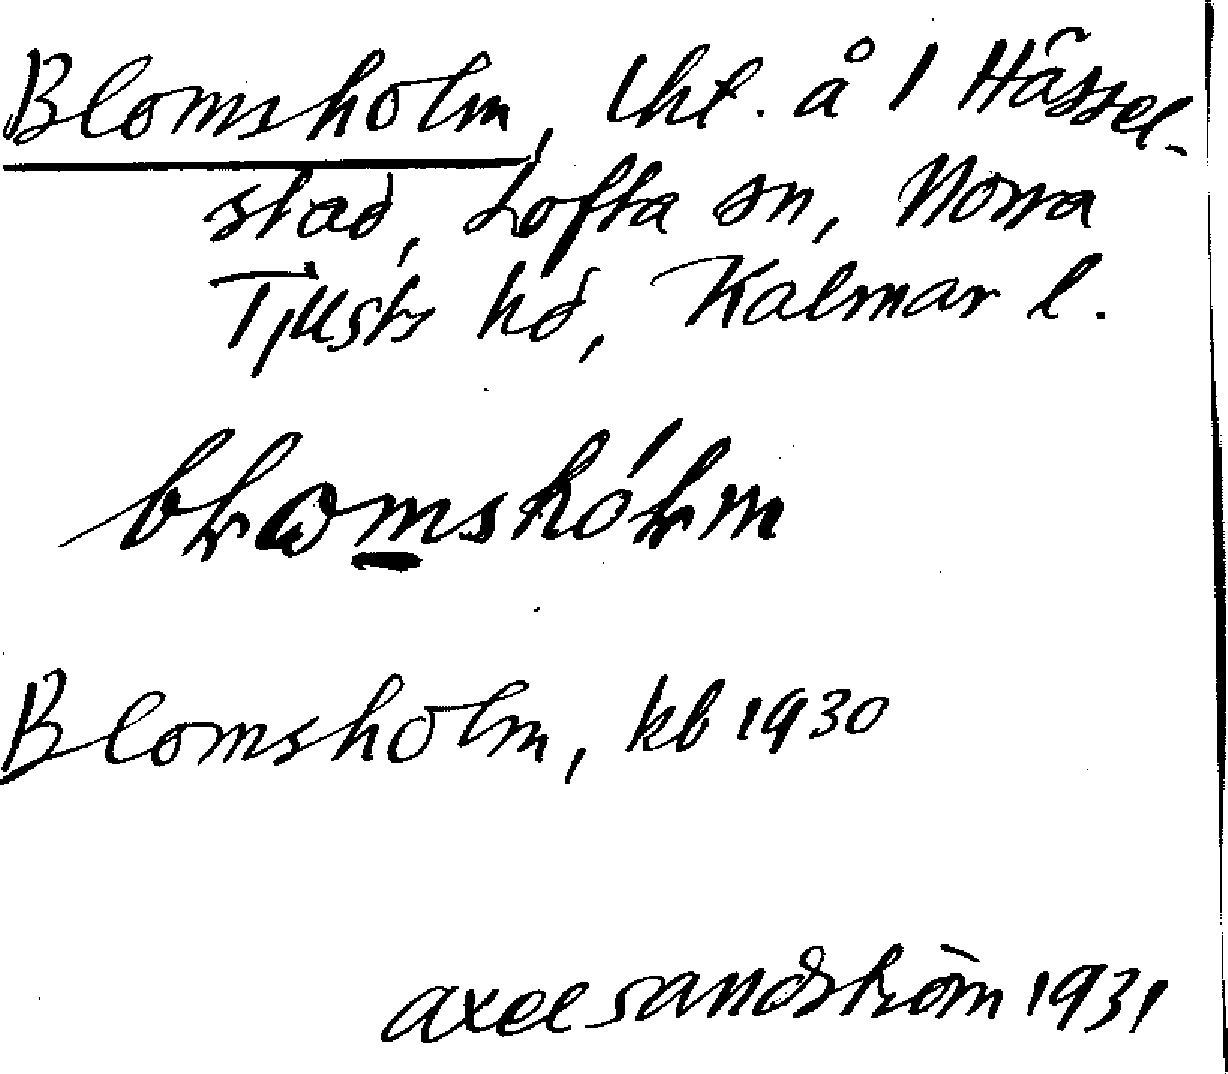 Blomsholm, lht. å 1 Hässel-
stad, Lofta sn, Norra
Tjusts hd, Kalmar l.
Blomsholm, kb 1930
axel sandström 1931